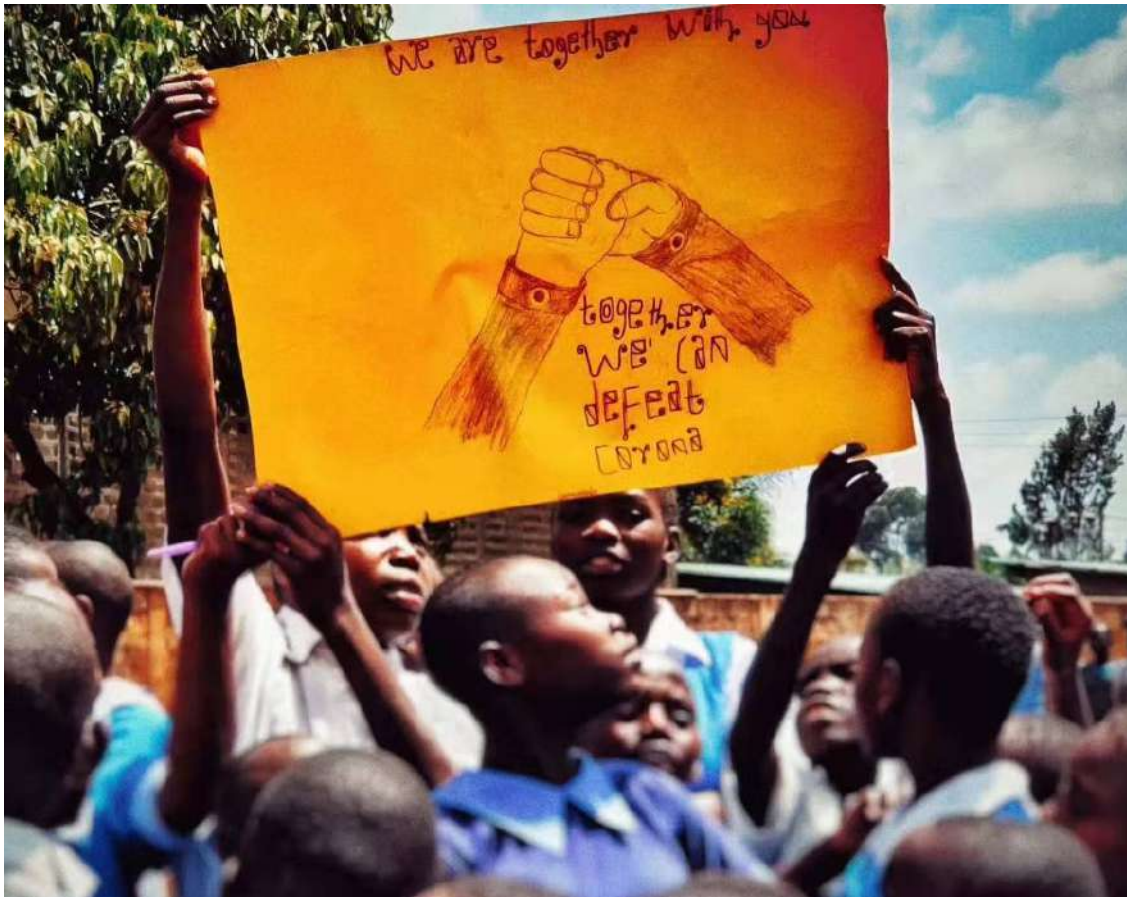 We are together with you
together
we can
defeat
corona